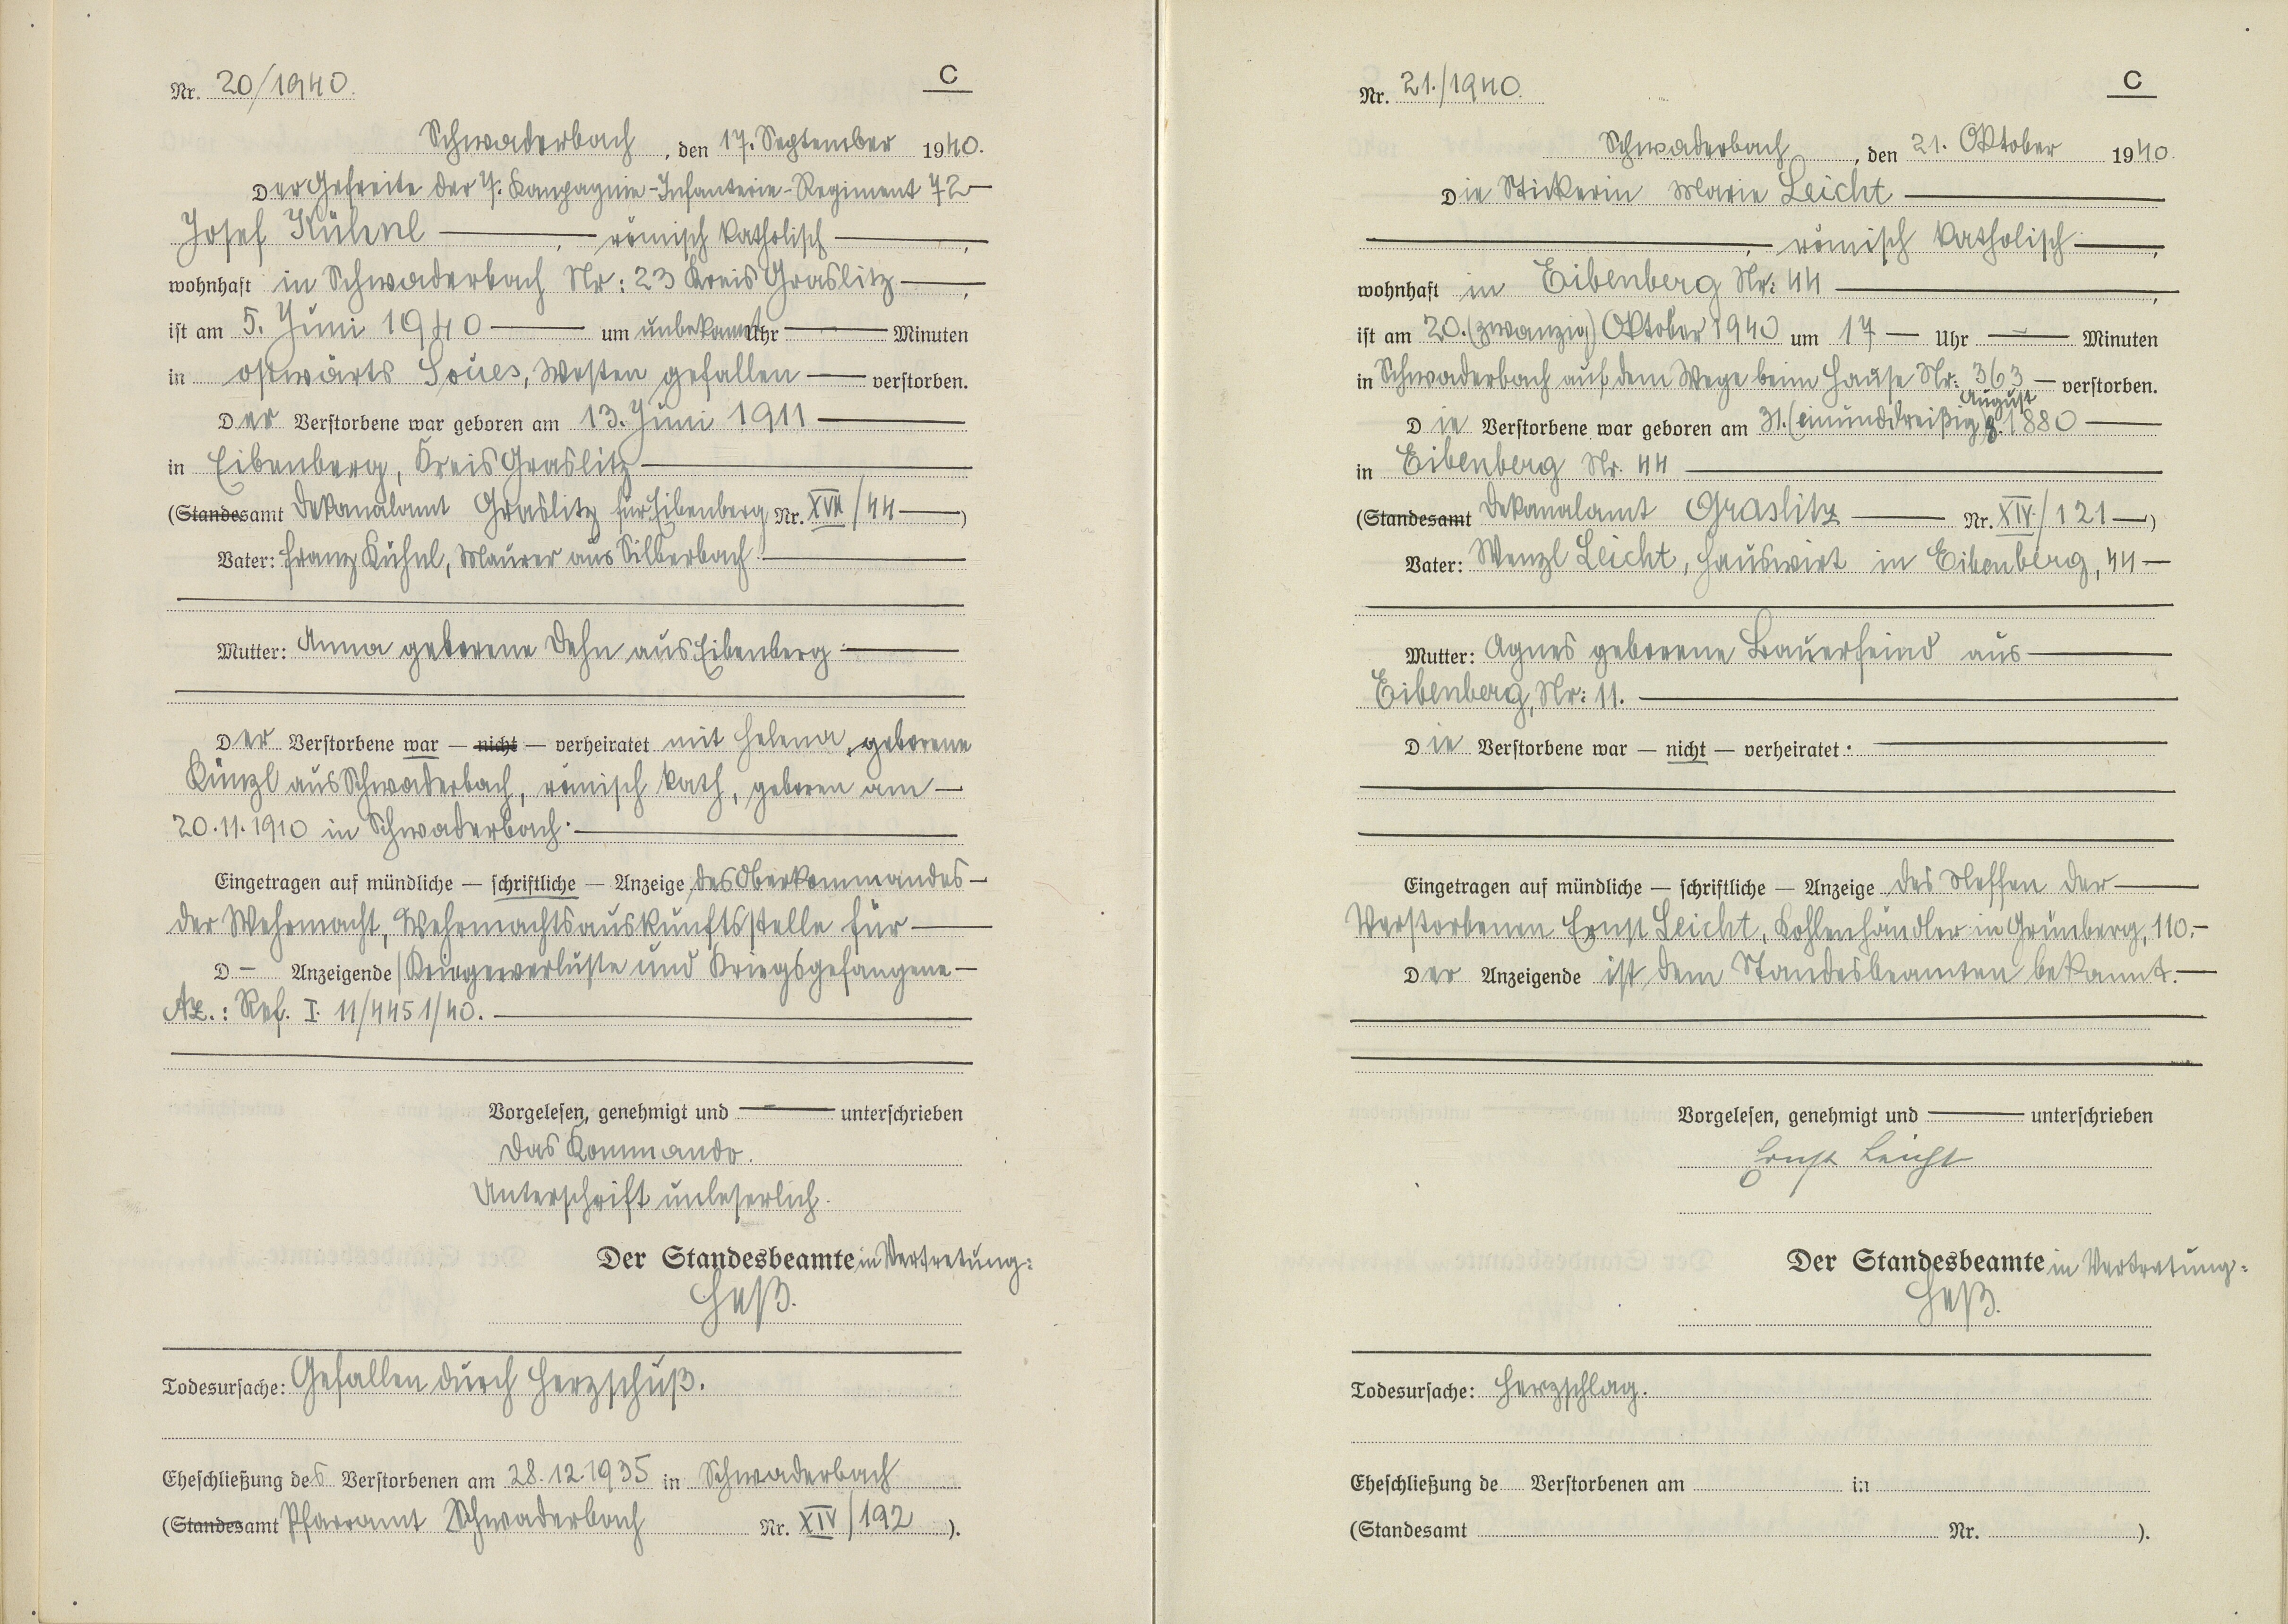 Nr. 20/1940.
C
Schwaderbach, den 17. September 1940.
Der Gefreite der 7. Kompagnie-Infanterie-Regiment 72
Josef Kühnl, römisch katholisch,
wohnhaft in Schwaderbach Nr: 23 Kreis Graslitz,
ist am 5. Juni 1940 um unbekannt Uhr Minuten
in ostwärts Soues, Westen gefallen verstorben.
Der Verstorbene war geboren am 13. Juni 1911
in Eibenberg, Kreis Graslitz
(Standesamt Dekanalamt Graslitz für Eibenberg Nr. XVII/44)
Vater: Franz Kühnl, Maurer aus Silberbach.
Mutter: Anna geborene Dehn aus Eibenberg
Der Verstorbene war — nicht — verheiratet mit Helena, geborene
Künzl aus Schwaderbach, römisch kath, geboren am
20.11.1910 in Schwaderbach.
Eingetragen auf mündliche — schriftliche — Anzeige des Oberkommandos
der Wehrmacht, Wehrmachtsauskunftsstelle für
D - Anzeigende Kriegerverluste und Kriegsgefangene
Az.: Ref. I. 11/4451/40.
Vorgelesen, genehmigt und unterschrieben
Das Kommando.
Unterschrift unleserlich.
Der Standesbeamte in Vertretung:
Heß.
Todesursache: Gefallen durch Herzschuß.
Eheschließung des Verstorbenen am 28.12.1935 in Schwaderbach
(Standesamt Pfarramt Schwaderbach Nr. XIV/192).
Nr. 21./1940.
C
Schwaderbach, den 21. Oktober 1940.
Die Stickerin Marie Leicht
, römisch katholisch,
wohnhaft in Eibenberg Nr: 44,
ist am 20. (zwanzig) Oktober 1940 um 17 Uhr Minuten
in Schwaderbach auf dem Wege beim Hause Nr: 363 verstorben.
August
Die Verstorbene war geboren am 31. (einunddreißig) 8. 1880
in Eibenberg Nr. 44
(Standesamt Dekanalamt Graslitz Nr. XIV/121)
Vater: Wenzl Leicht, Hauswirt in Eibenberg, 44
Mutter: Agnes geborene Bauerfeind aus
Eibenberg, Nr: 11.
Die Verstorbene war — nicht — verheiratet.
Eingetragen auf mündliche — schriftliche — Anzeige des Neffen der
Verstorbenen Ernst Leicht, Kohlenhändler in Grünberg, 110.
Der Anzeigende ist dem Standesbeamten bekannt.
Vorgelesen, genehmigt und unterschrieben
Ernst Leicht
Der Standesbeamte in Vertretung:
Heß.
Todesursache: Herzschlag.
Eheschließung de Verstorbenen am in
(Standesamt Nr. ).